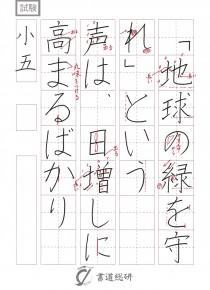 試験
小五
「地球の緑を守
れ」という
声は、日増しに
高まるばかり
書道総研